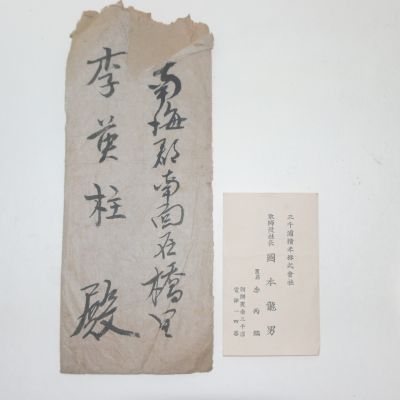 南海郡南面石橋里
李英柱 殿
三千浦精米株式會社
取締役社長
國本龍男
舊名 李丙
朝鮮慶南三千浦
電話一四番